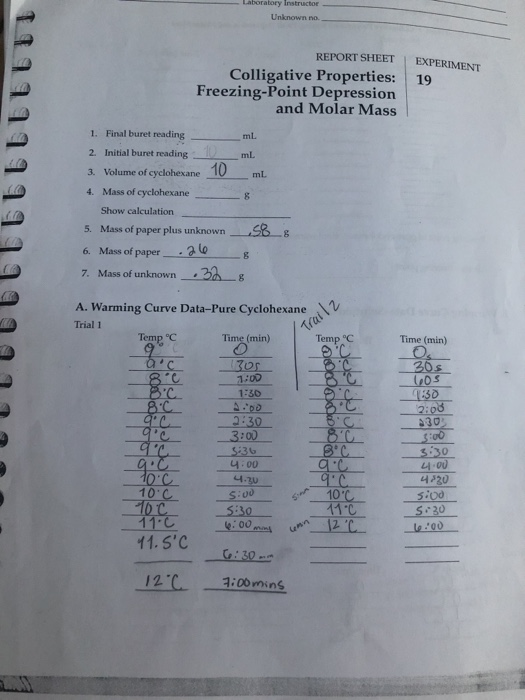 Laboratory Instructor
Unknown no.
REPORT SHEET
EXPERIMENT
Colligative Properties:
19
Freezing-Point Depression
and Molar Mass
1. Final buret reading mL
2. Initial buret reading 10 mL
3. Volume of cyclohexane 10 mL
4. Mass of cyclohexane g
Show calculation
5. Mass of paper plus unknown .58 g
6. Mass of paper .26 g
7. Mass of unknown .32 g
A. Warming Curve Data–Pure Cyclohexane
Trial 1 Trail 2
Temp °C Time (min) Temp °C Time (min)
9°C 0 8°C 0
9°C 30s 8°C 30s
8°C 1:00 8°C 60s
8°C 1:30 8°C 1:30
8°C 2:00 8°C 2:00
9°C 2:30 8°C 230
9°C 3:00 8°C 3:00
9°C 3:30 8°C 3:30
9°C 4:00 9°C 4:00
10°C 4:30 9°C 4:30
10°C 5:00 5min 10°C 5:00
10°C 5:30 11°C 5:30
11°C 6:00 mins 6min 12°C 6:00
11.5°C 6:30
12°C 7:00mins